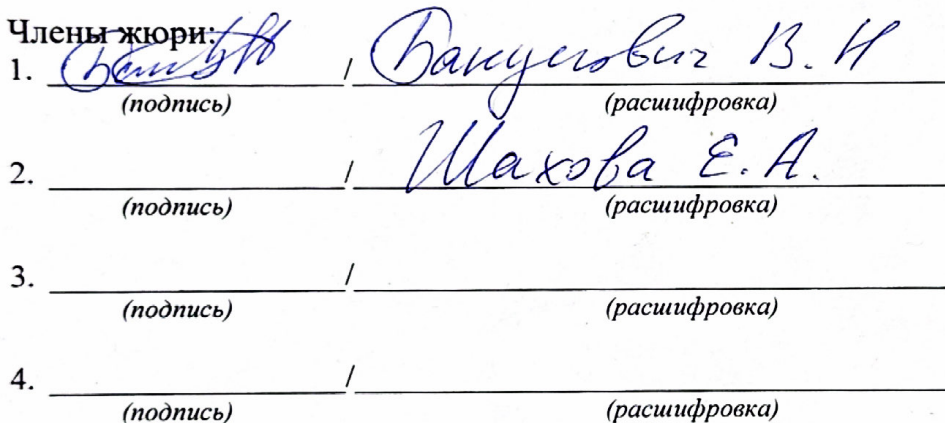 Члены жюри:
1. / В. Н
(подпись) (расшифровка)
2. / Шахова Е. А.
(подпись) (расшифровка)
3. /
(подпись) (расшифровка)
4. /
(подпись) (расшифровка)